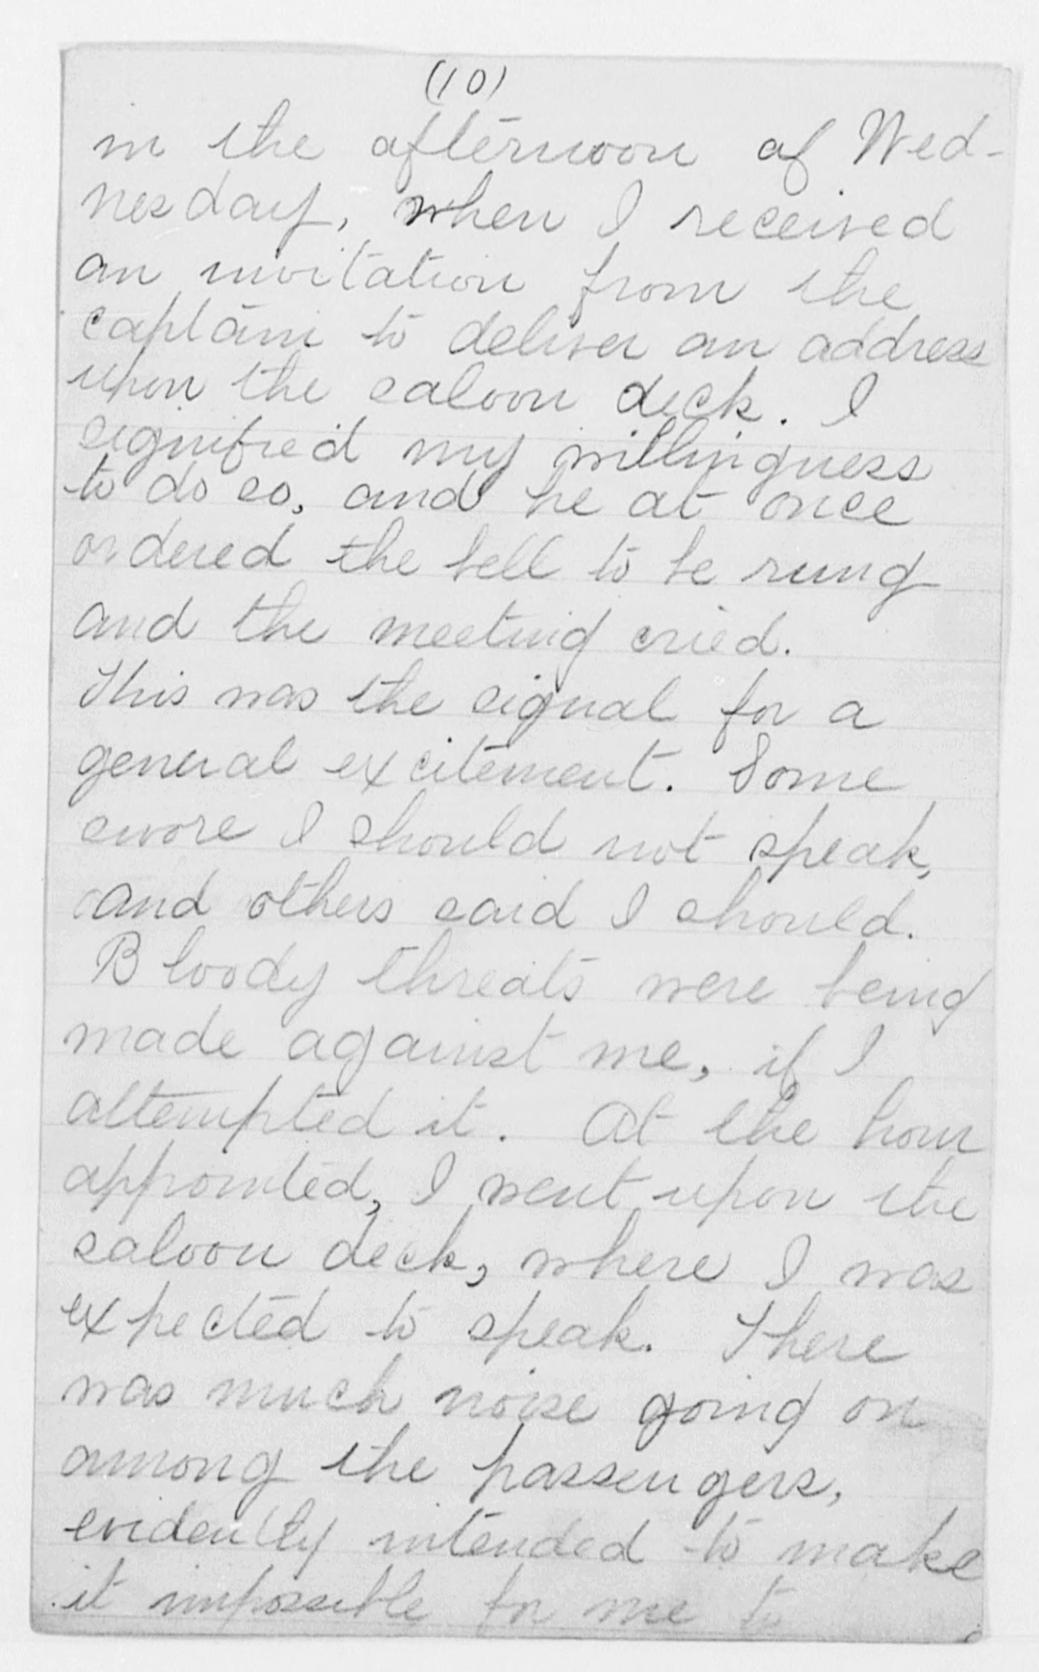 (10)
in the afternoon of Wed-
nesday, when I received
an invitation from the
captain to deliver an address
upon the saloon deck. I
signified my willingness
to do so, and he at once
ordered the bell to be rung
and the meeting cried.
This was the signal for a
general excitement. Some
swore I should not speak,
and others said I should.
Bloody threats were being
made against me, if I
attempted it. At the hour
appointed, I went upon the
saloon deck, where I was
expected to speak. There
was much noise going on
among the passengers,
evidently intended to make
it impossible for me to